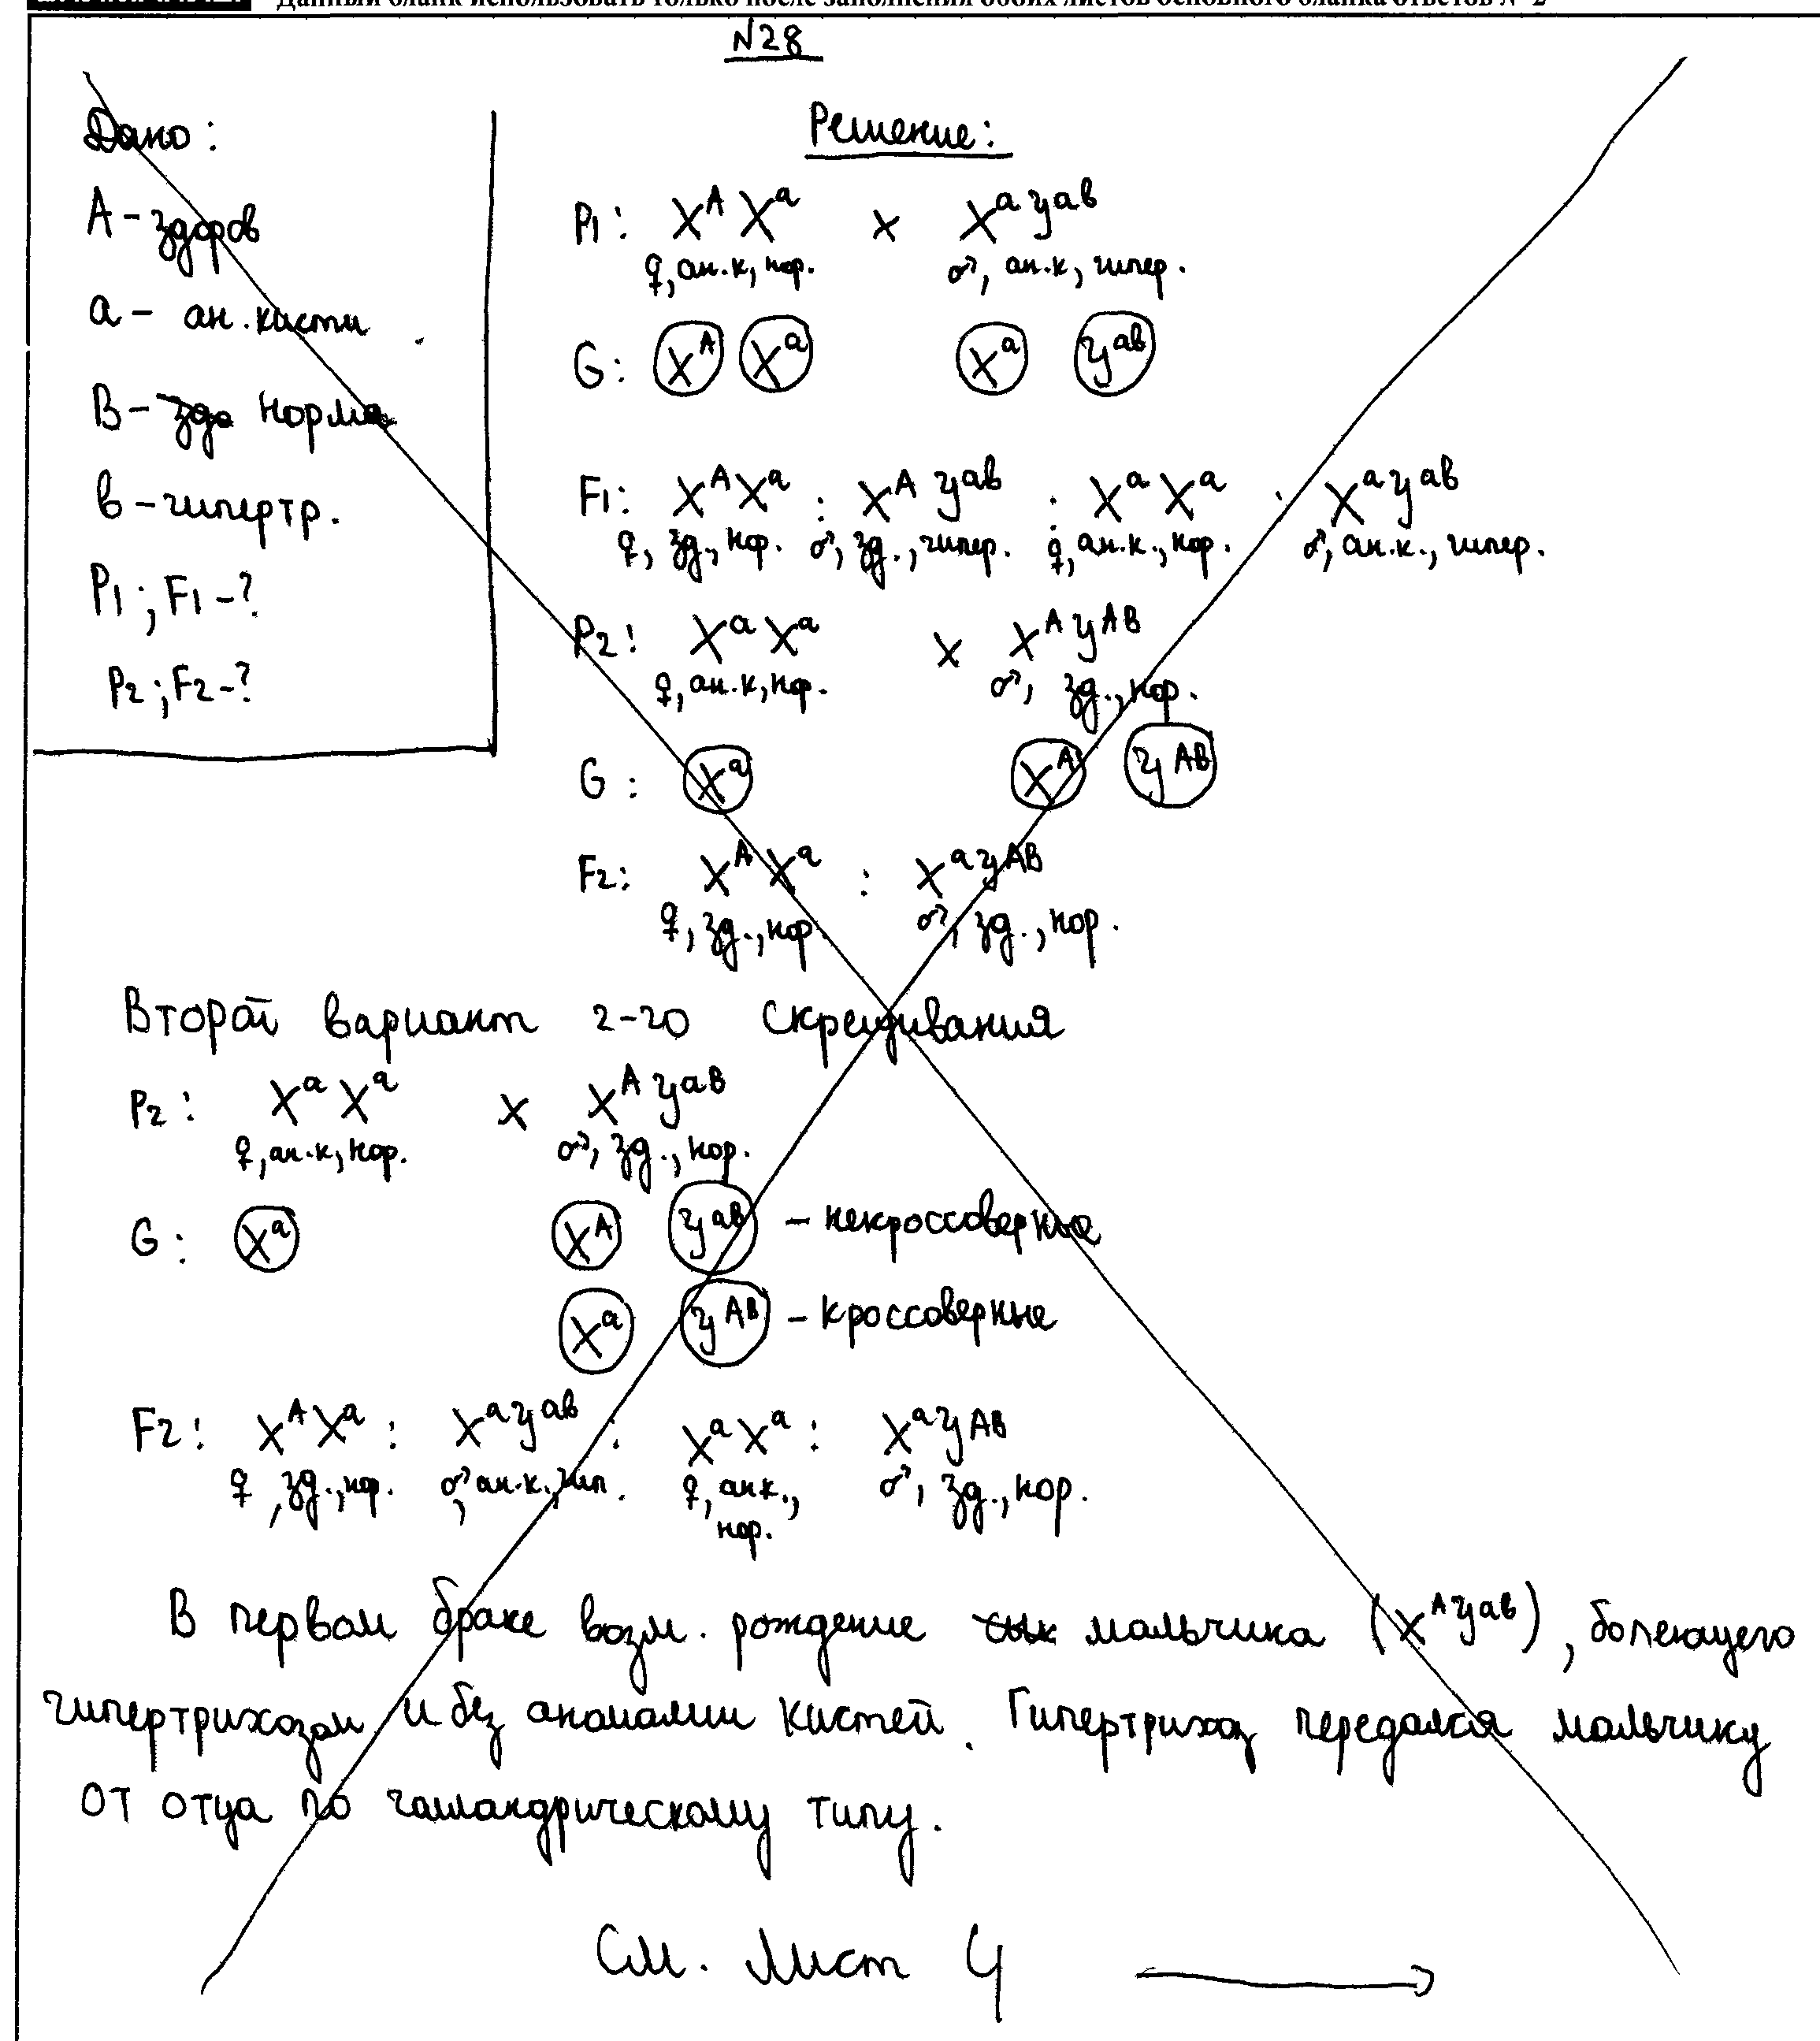 Данный бланк использовать только после заполнения обоих листов основного бланка ответов № 2
N28
Дано:
A - здоров
a - ан. кисти
B - здо норма
в - гипертр.
P1; F1 - ?
P2; F2 - ?
Решение:
P1: X^A X^a × X^a У^ав
♀, ан.к, нор. ♂, ан.к, гипер.
G: X^A X^a X^a У^ав
F1: X^A X^a : X^A У^ав : X^a X^a : X^a У^ав
♀, зд., нор. ♂, зд., гипер. ♀, ан.к., нор. ♂, ан.к., гипер.
P2: X^a X^a × X^A У^АВ
♀, ан.к, нор. ♂, зд., нор.
G: X^a X^A У^АВ
F2: X^A X^a : X^a У^АВ
♀, зд., нор. ♂, зд., нор.
Второй вариант 2-го скрещивания
P2: X^a X^a × X^A У^аВ
♀, ан.к, нор. ♂, зд., нор.
G: X^a X^A У^аВ - некроссоверные
X^a У^АВ - кроссоверные
F2: X^A X^a : X^a У^ав : X^a X^a : X^a У^АВ
♀, зд., нор. ♂, ан.к., гип. ♀, ан.к., ♂, зд., нор.
нор.
В первом браке возм. рождение сын мальчика (X^A У^ав), болеющего
гипертрихозом и без аномалии кистей. Гипертрихоз передался мальчику
от отца по голандрическому типу.
См. Лист 4 →